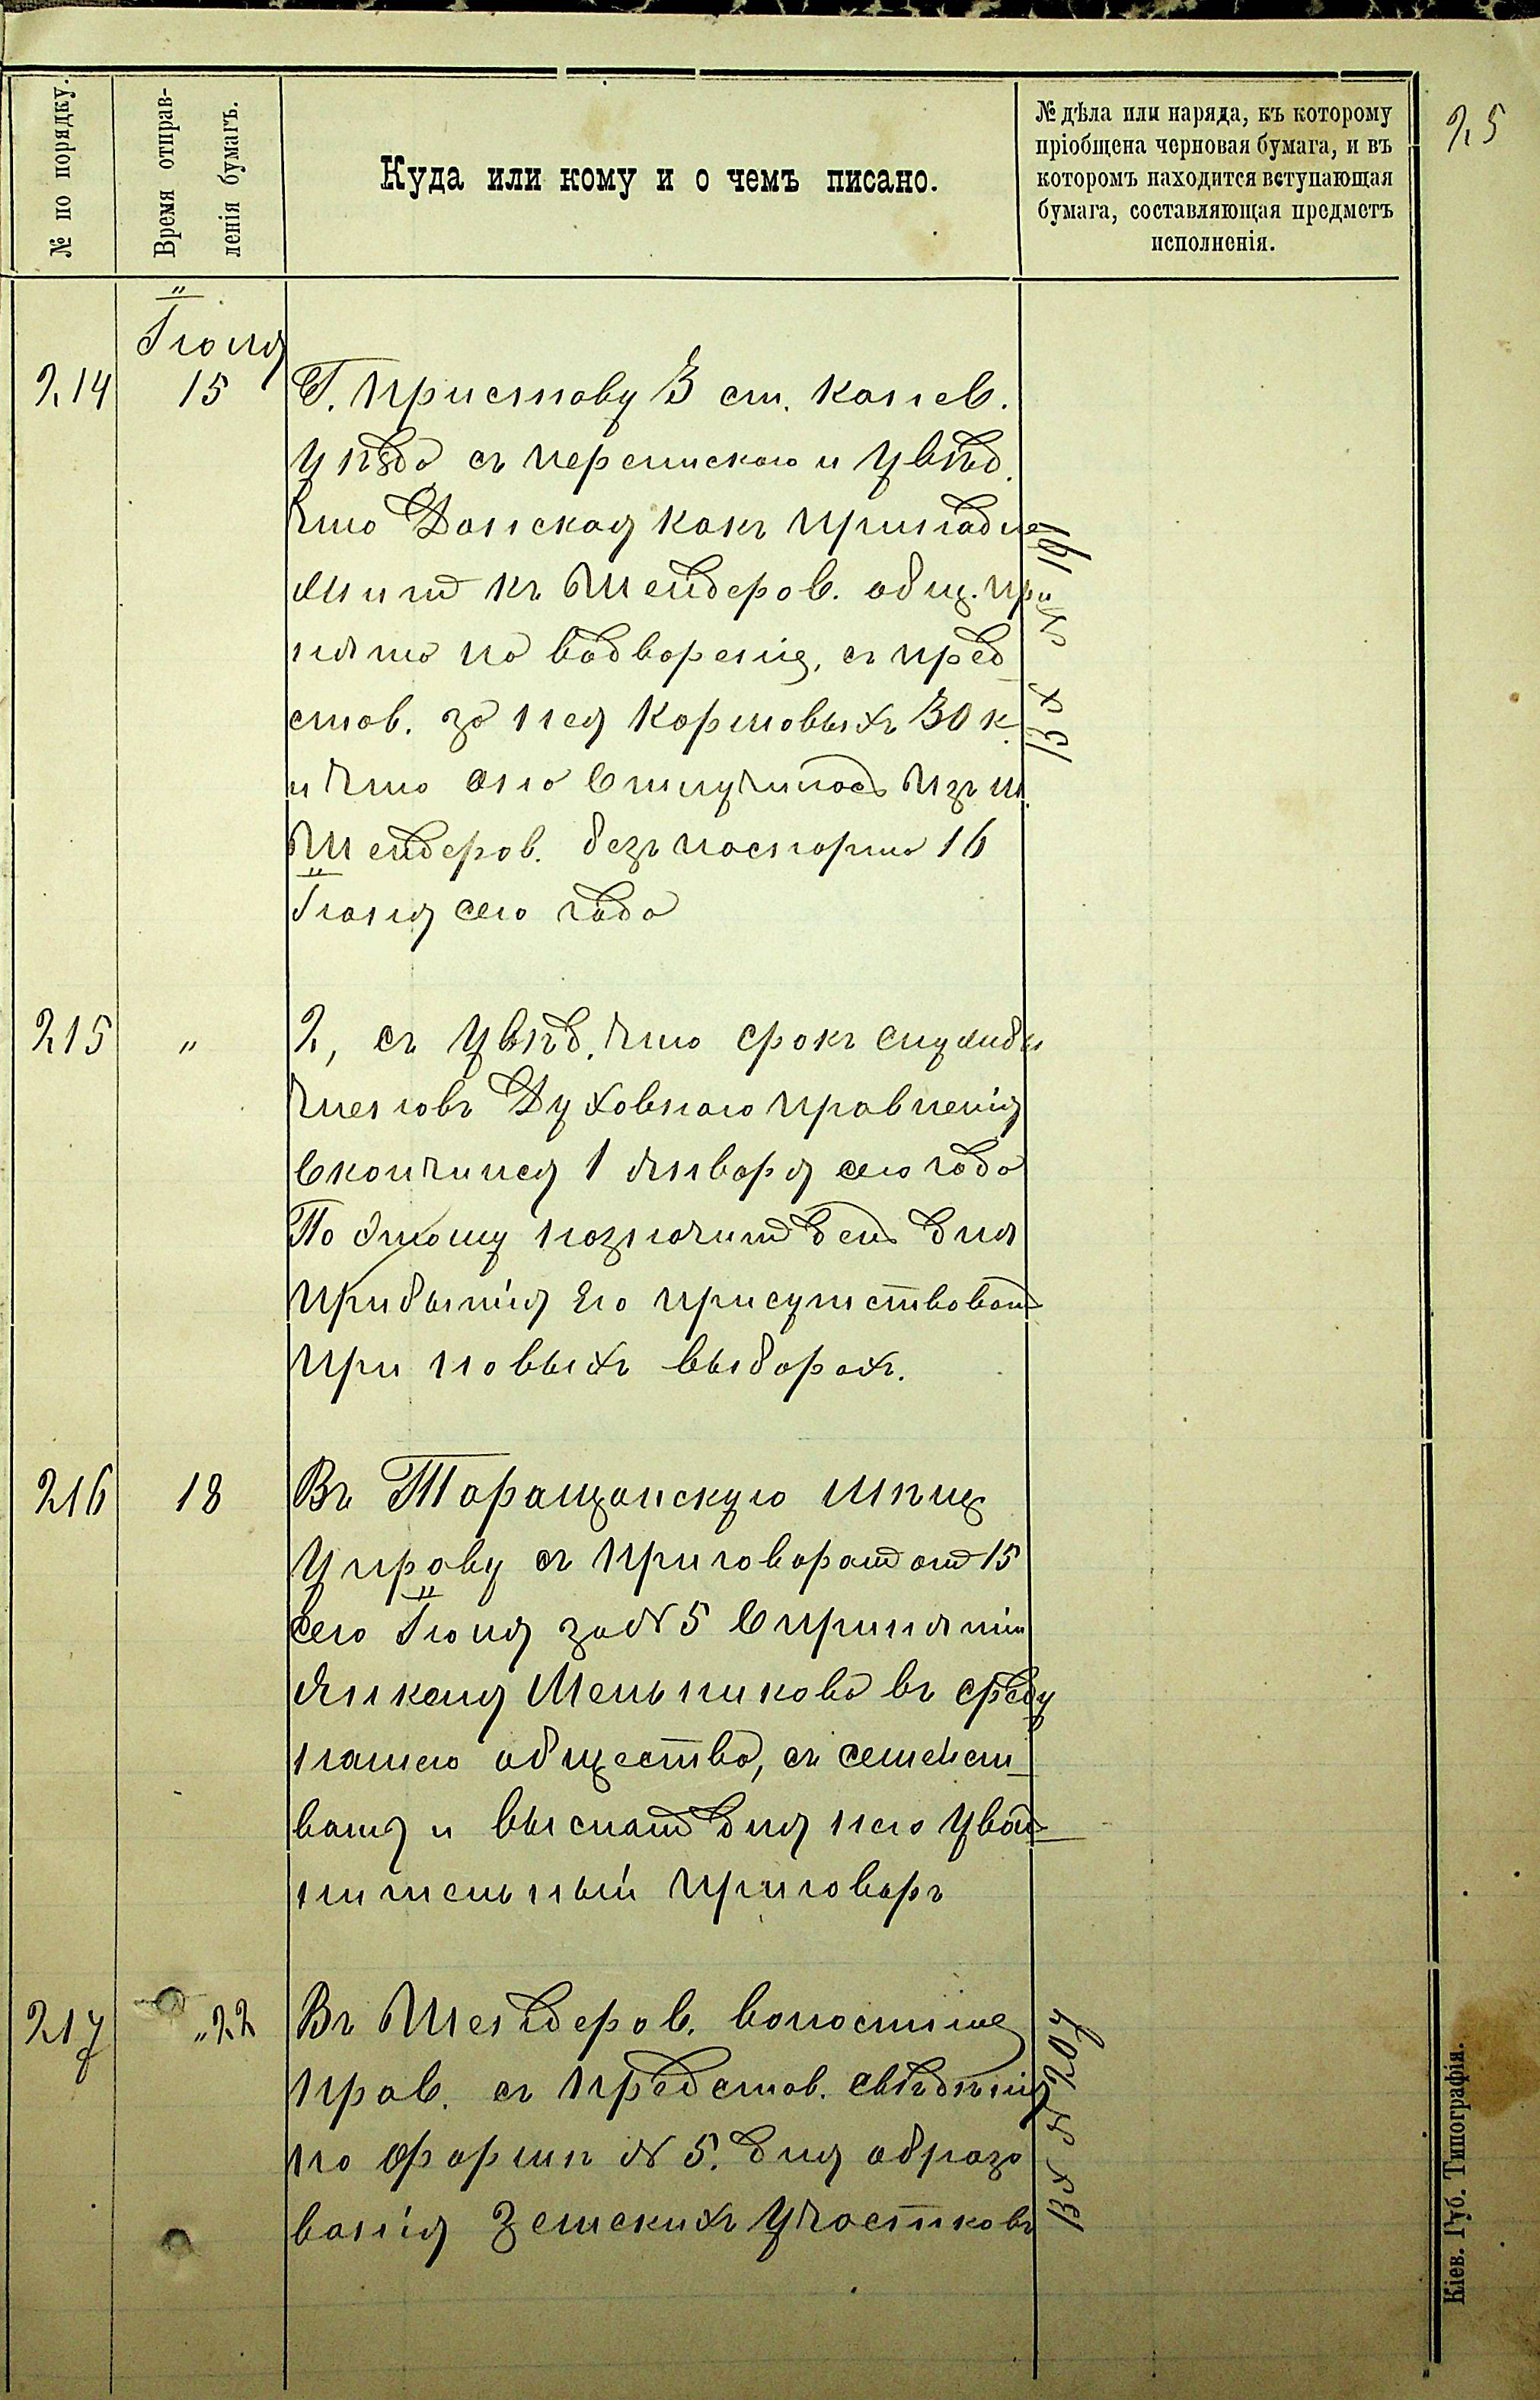 25
№ по порядку.
Время отправ-
ленія бумагъ.
Куда или кому и о чемъ писано.
№ дѣла или наряда, къ которому
пріобщена черновая бумага, и въ
которомъ находится вступающая
бумага, составляющая предметъ
исполненія.
Іюля
214 15 Г. Приставу 3 ст. Канев.
уѣзда съ перепискою и увѣд.
что Данская какъ принадле
житъ къ Шендеров. общ. при
нята на водвореніе, съ пред
став. за нея кормовыхъ 30 к.
и что она отлучилась изъ м.
Шендеров. безъ паспорта 16
Іюня сего года
Вх № 191
215 " 2, съ увѣд. что срокъ службы
членовъ Духовнаго правленія
окончился 1 января сего года
По этому назначитъ день для
прибытія его присутствовать
при новыхъ выборахъ.
216 18 Въ Таращанскую Мѣщ
Управу съ приговоромъ отъ 15
сего Іюля за № 5 о принятіи
Янкеля Мельникова въ среду
нашего общества, съ семейст-
вомъ и выслатъ для него уволь-
нительный приговоръ
217 " 22 Въ Шендеров. волостное
прав. съ представ. свѣдѣнія
по формѣ № 5. для образо
ванія Земскихъ участковъ
Вх № 207
Кіев. Губ. Типографія.